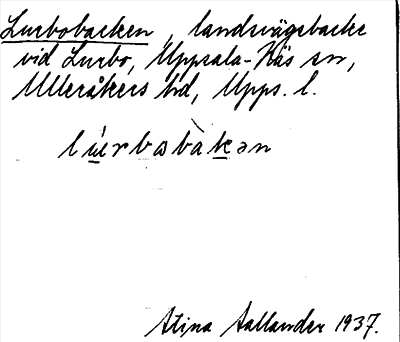 Lurbobacken, landsvägsbacke
vid Lurbo, Uppsala-Näs sn,
Ulleråkers hd, Upps. l.
lu̇rbobàkən
Stina Aallander 1937.